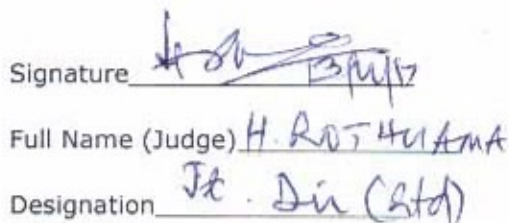 Signature 13/11/17
Full Name (Judge) H. ROTHUAMA
Designation Jt. Dir (Std)